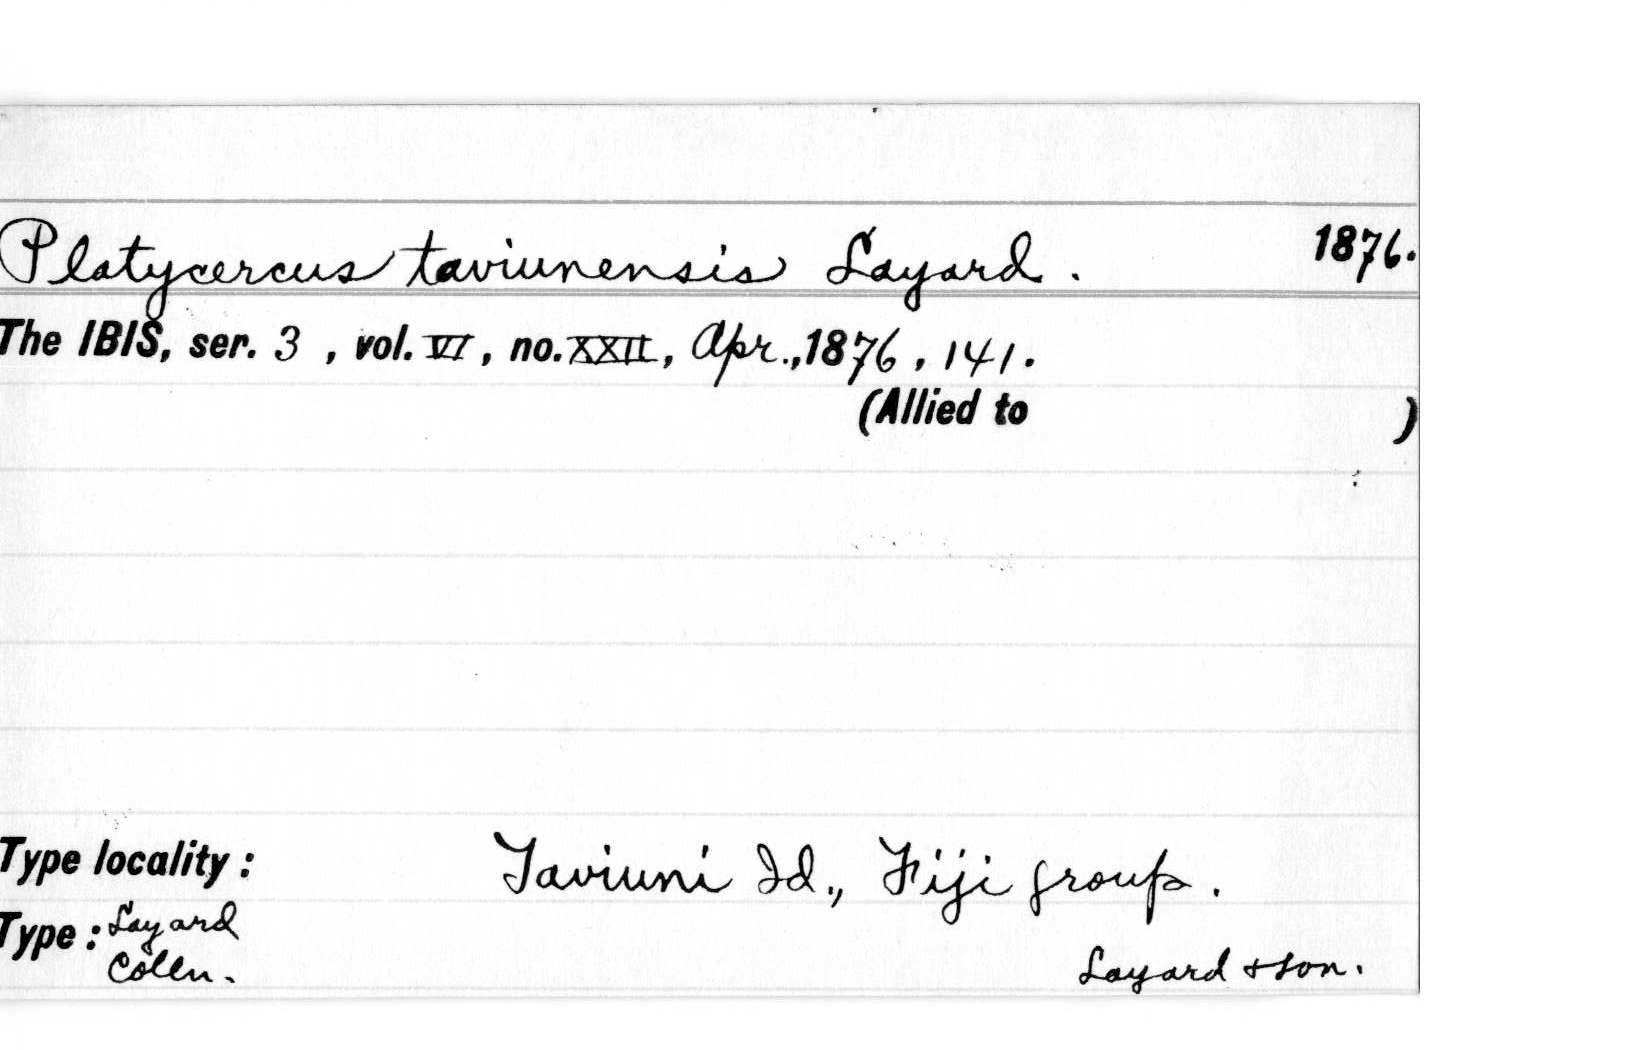 Platycercus taviunensis Layard. 1876.
The IBIS, ser. 3, vol. VI, no. XXII, Apr., 1876, 141.
(Allied to )
Type locality: Taviuni Id., Fiji group.
Type: Layard
Colln. Layard + son.